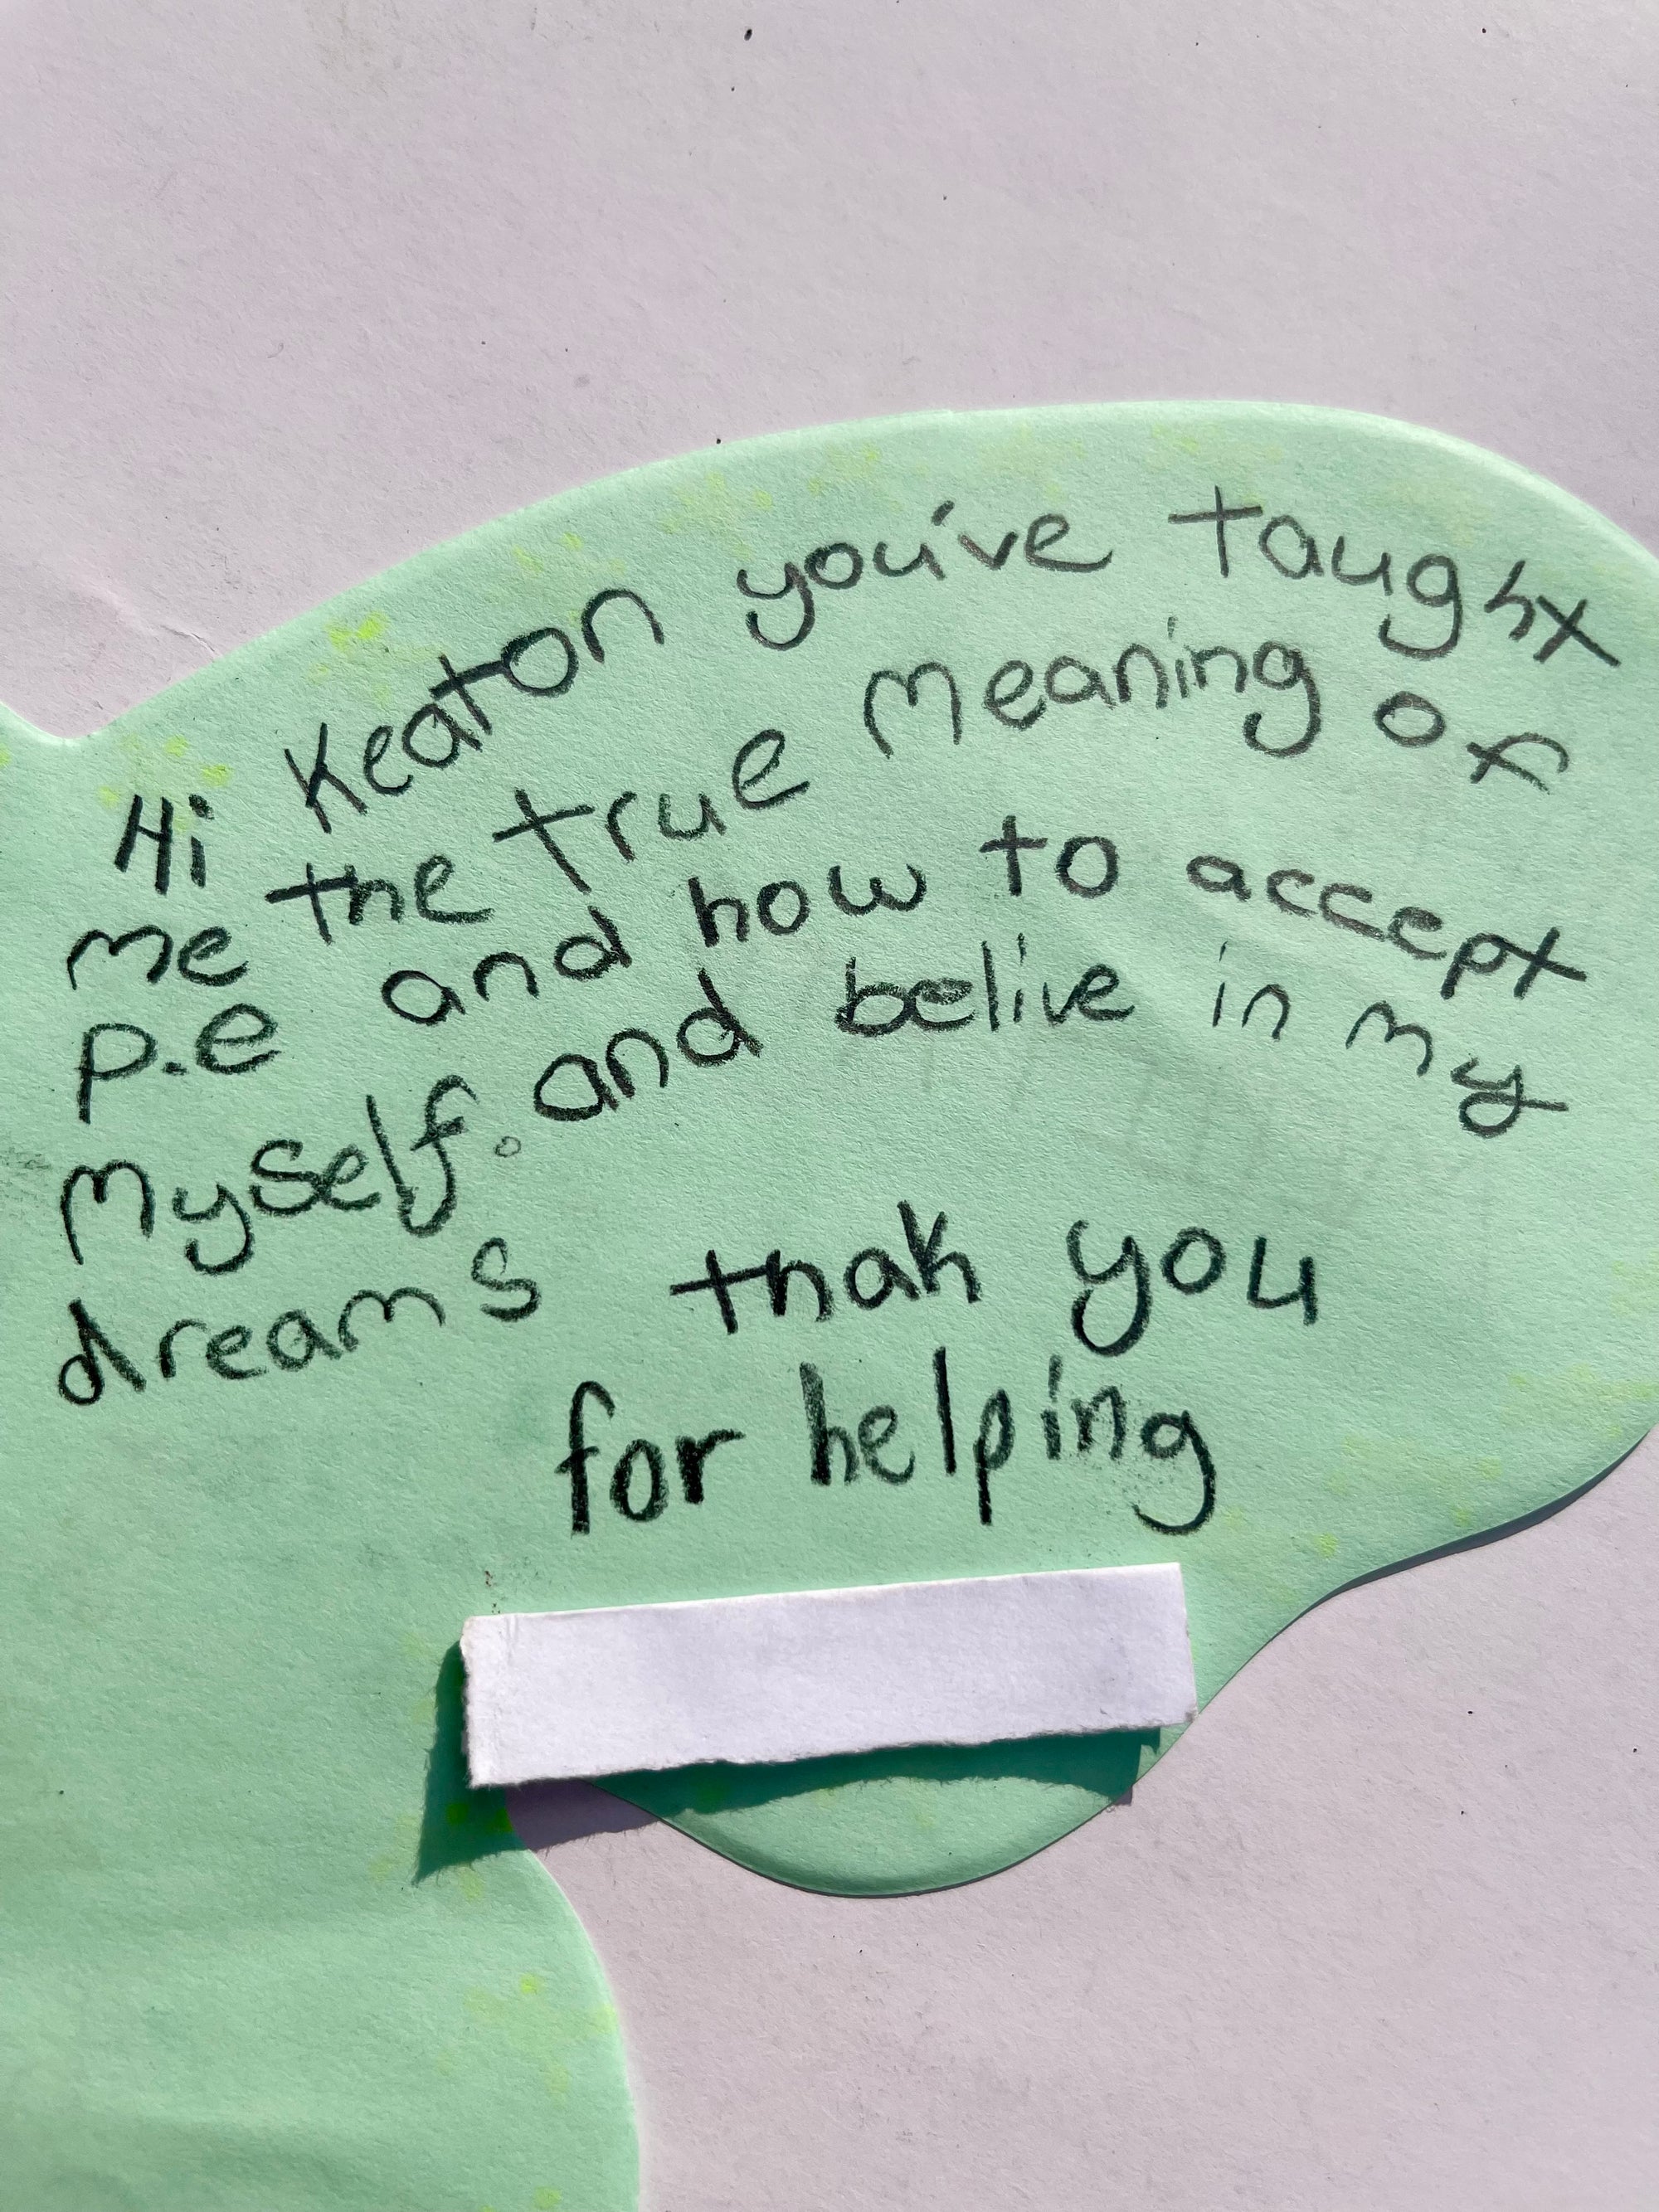 Hi Keaton you've taught
me the true meaning of
p.e and how to accept
myself. and belive in my
dreams thak you
for helping